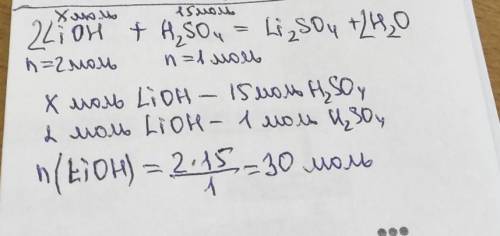 x моль 15 моль
2LiOH + H₂SO₄ = Li₂SO₄ + 2H₂O
n=2 моль n=1 моль
x моль LiOH – 15 моль H₂SO₄
2 моль LiOH – 1 моль H₂SO₄
n(LiOH) = 2·15/1 = 30 моль